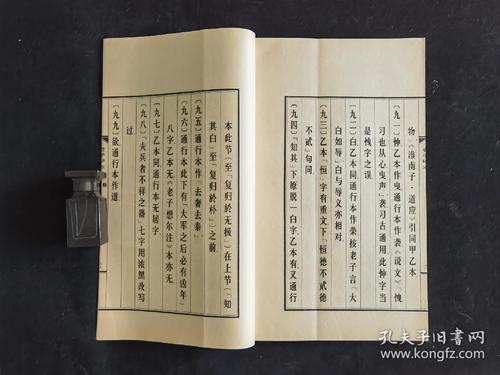 物《淮南子·道应》引同甲乙本
〔九一〕忡乙本作曳通行本作袭《说文》「愧
习也从心曳声」袭习古通用此忡字当
是愧字之误
〔九二〕白乙本同通行本作荣按老子言「大
白如辱」白与辱义亦相对
〔九三〕乙本「恒」字有重文下「恒德不贰德
不贰」句同
〔九四〕「知其」下原脱一白字乙本有又通行
本此节（至「复归於无极」）在上节（「知
其白」至「复归於朴」）之前
〔九五〕通行本作「去奢去泰」
〔九六〕通行本此下有「大军之后必有凶年」
八字乙本无《老子想尔注》本亦无
〔九七〕乙本同通行本无居字
〔九八〕「夫兵者不祥之器」七字用浓黑改写
过
〔九九〕欲通行本作道
孔夫子旧书网
www.kongfz.com